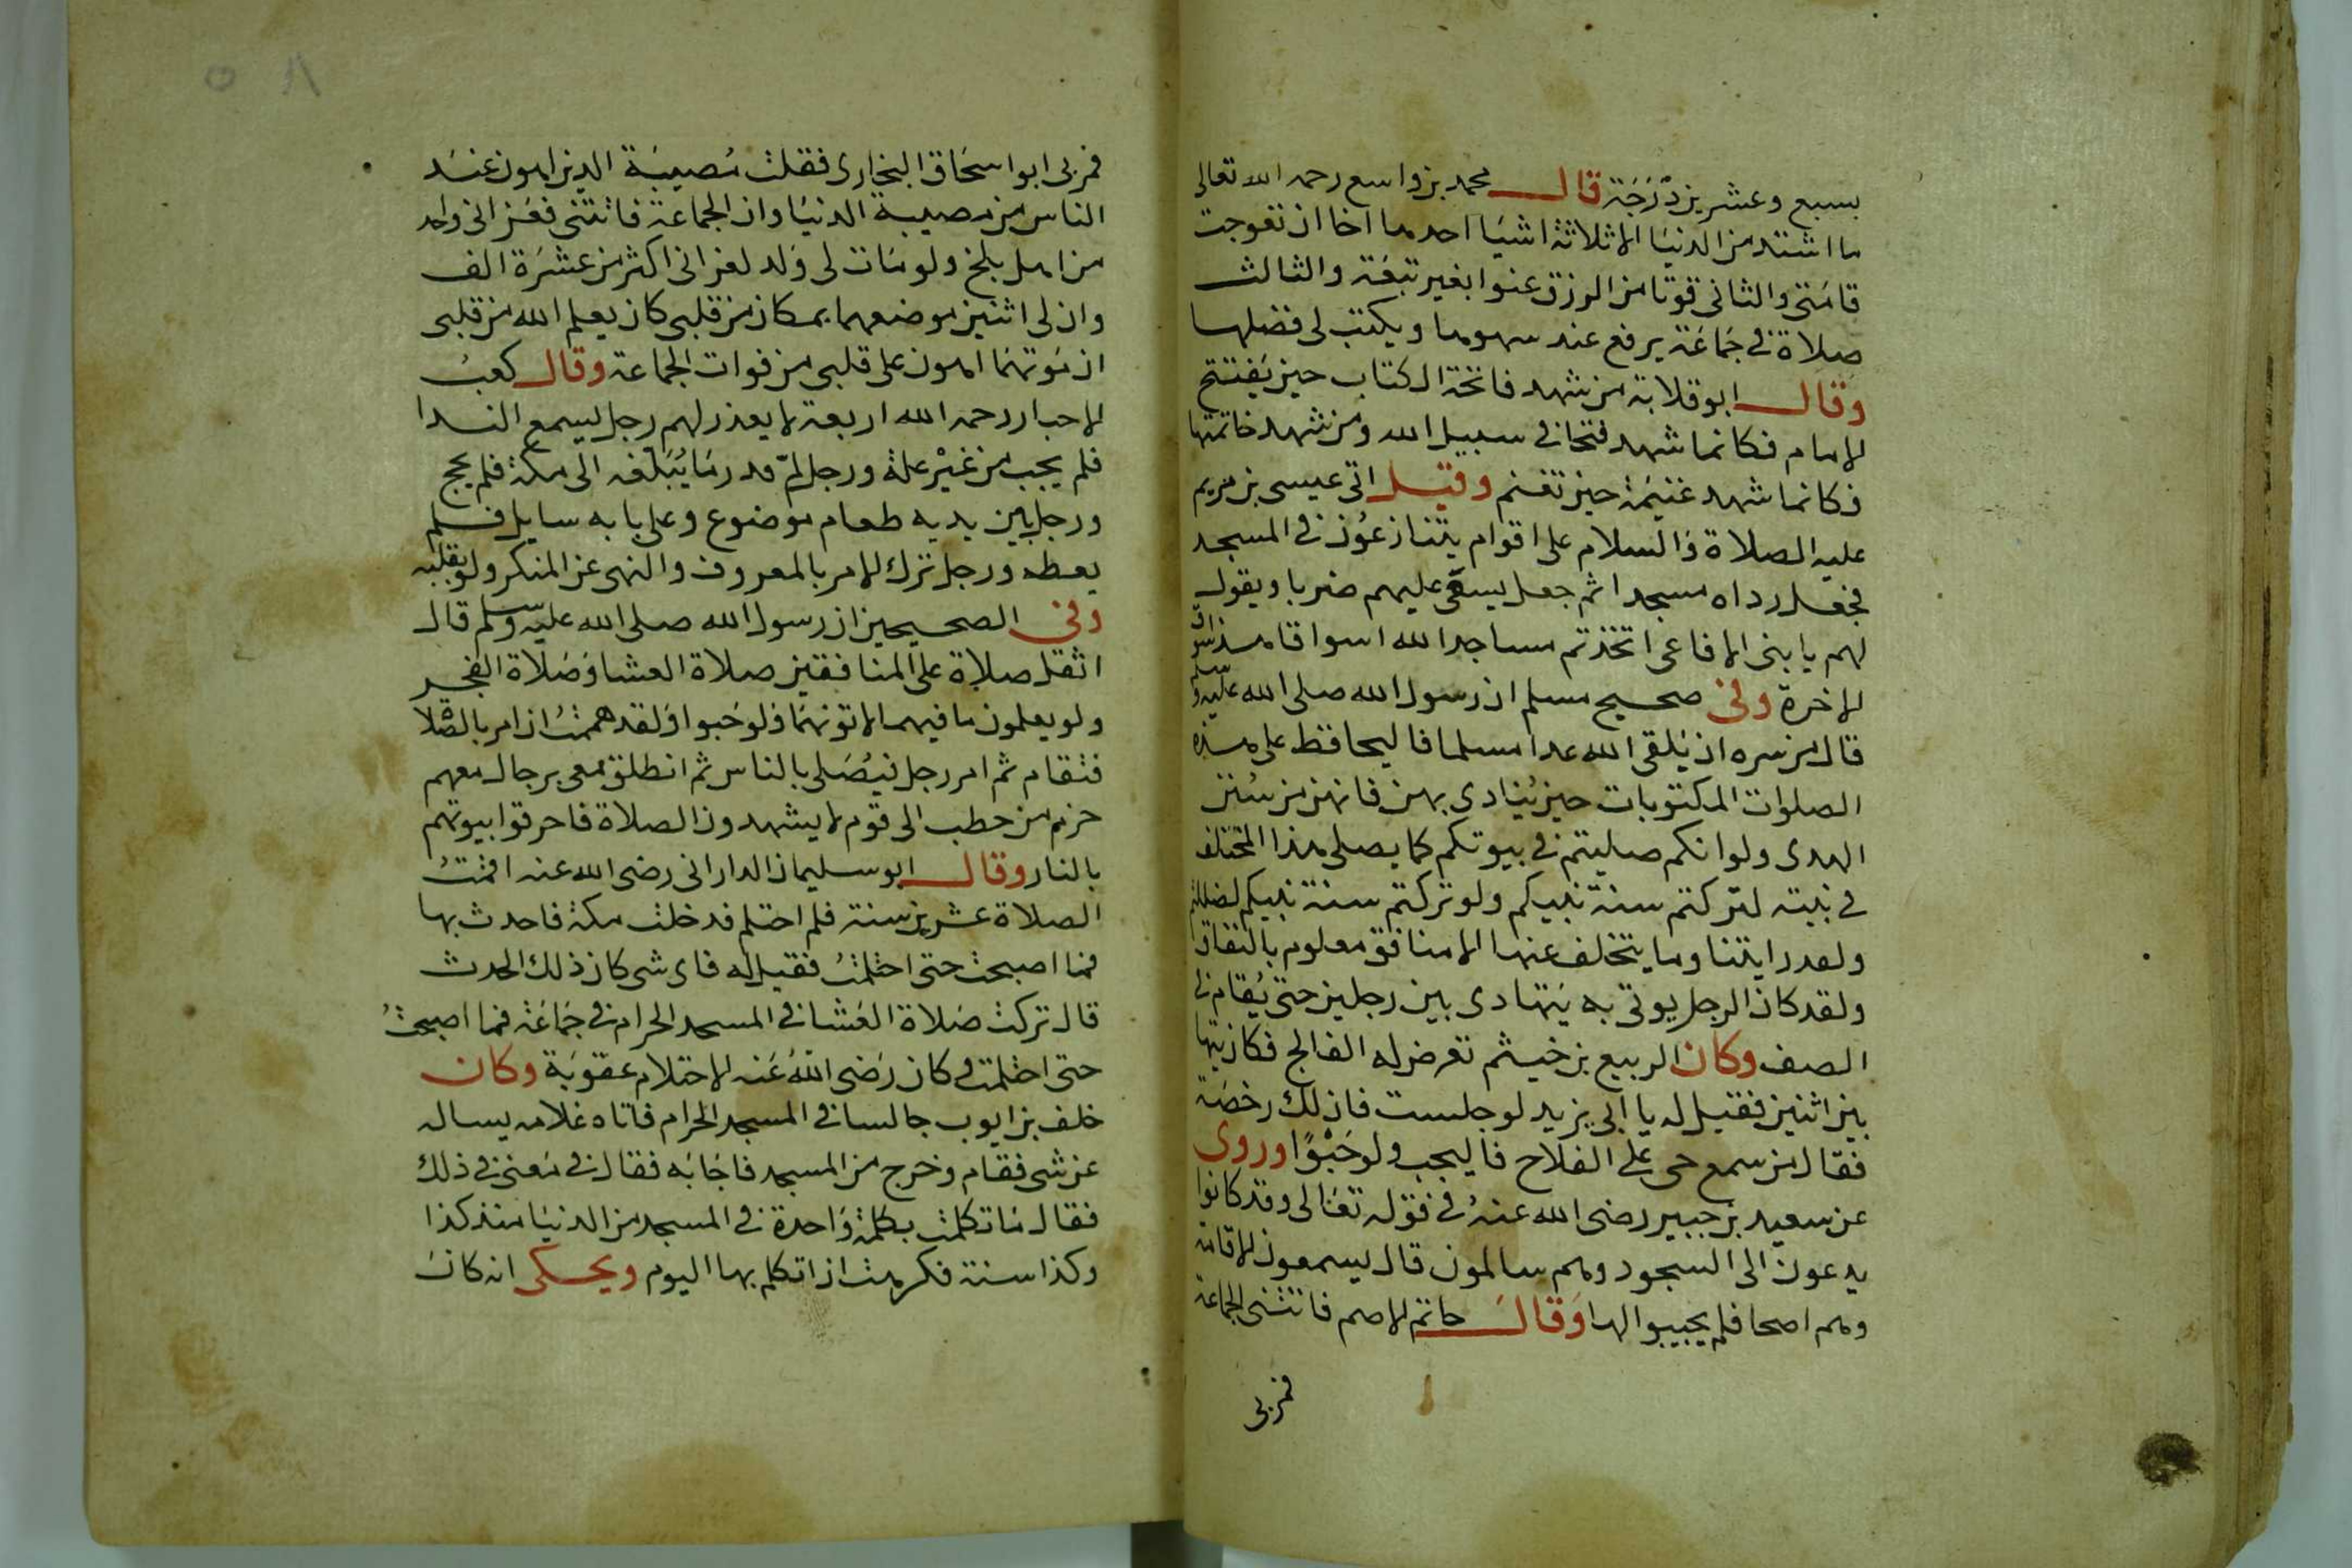 بسبع وعشرين درجة قال محمد بن واسع رحمه الله تعالى
ما اشتد من الدنيا الا ثلاثة اشيا احدها اخا ان تعوجت
قامتى والثانى قوتا من الرزق عنوا بغير تبعة والثالث
صلاة فى جماعة يرفع عند سهوها ويكتب لى فضلها
وقال ابو قلابة من شهد فاتحة الكتاب حين يفتتح
الامام فكانما شهد فتحا فى سبيل الله ومن شهد خاتمتها
فكانما شهد غنيمة حين تغنم وقيل اتى عيسى بن مريم
عليه الصلاة والسلام على اقوام يتنازعون فى المسجد
فجعل رداه مسجدا ثم جعل يسعى عليهم ضربا ويقول
لهم يا بنى الافاعى اتخذتم مساجد الله اسواقا هذا سوق
الاخرة وفى صحيح مسلم ان رسول الله صلى الله عليه وسلم
قال من سره ان يلقى الله غدا مسلما فاليحافظ على هذه
الصلوات المكتوبات حين ينادى بهن فانهن من سنن
الهدى ولو انكم صليتم فى بيوتكم كما يصلى هذا المختلف
فى بيته لتركتم سنة نبيكم ولو تركتم سنة نبيكم لضللتم
ولقد رايتنا وما يتخلف عنها الا منافق معلوم بالنفاق
ولقد كان الرجل يوتى به يتهادى بين رجلين حتى يقام فى
الصف وكان الربيع بن خيثم تعرض له الفالج فكان يتها
بين اثنين فقيل له يا ابى يزيد لو جلست فان لك رخصة
فقال من سمع حى على الفلاح فاليجب ولو حبوا وروى
عن سعيد بن جبير رضى الله عنه فى قوله تعالى وقد كانوا
يدعون الى السجود وهم سالمون قال يسمعون الاقامة
وهم اصحا فلم يجيبوا لها وقال حاتم الاصم فاتتنى الجماعة
فمر بى
فمر بى ابو اسحاق البخارى فقلت مصيبة الدين اهون عند
الناس من مصيبة الدنيا وان الجماعة فاتتنى فعزانى واحد
من اهل بلخ ولو مات لى ولد لعزانى اكثر من عشرة الف
وان لى اثنين موضعهما بمكان من قلبى كان يعلم الله من قلبى
ان موتهما اهون على قلبى من فوات الجماعة وقال كعب
الاحبار رحمه الله اربعة لا يعذر لهم رجل يسمع الندا
فلم يجب من غير علة ورجل لم قدر ما يبلغه الى مكة فلم يحج
ورجل بين يديه طعام موضوع وعلى بابه سايل فلم
يعطه ورجل ترك الامر بالمعروف والنهى عن المنكر ولو بقلبه
وفى الصحيحين ان رسول الله صلى الله عليه وسلم قال
اثقل صلاة على المنافقين صلاة العشا وصلاة الفجر
ولو يعلمون ما فيهما لاتونهما ولو حبوا ولقد هممت ان امر بالصلاة
فتقام ثم امر رجل فيصلى بالناس ثم انطلق معى برجال معهم
حزم من حطب الى قوم لا يشهدون الصلاة فاحرقوا بيوتهم
بالنار وقال ابو سليمان الدارانى رضى الله عنه اقمت
الصلاة عشرين سنة فلم احتلم فدخلت مكة فاحدث بها
فما اصبحت حتى احتلمت فقيل له فاى شى كان ذلك الحدث
قال تركت صلاة العشا فى المسجد الحرام فى جماعة فما اصبحت
حتى احتلمت وكان رضى الله عنه الاحتلام عقوبة وكان
خلف بن ايوب جالسا فى المسجد الحرام فاتاه غلامه يساله
عن شى فقام وخرج من المسجد فاجابه فقال فى معنى فى ذلك
فقال ما تكلمت بكلمة واحدة فى المسجد من الدنيا منذ كذا
وكذا سنة فكرهت ان اتكلم بها اليوم ويحكى انه كان